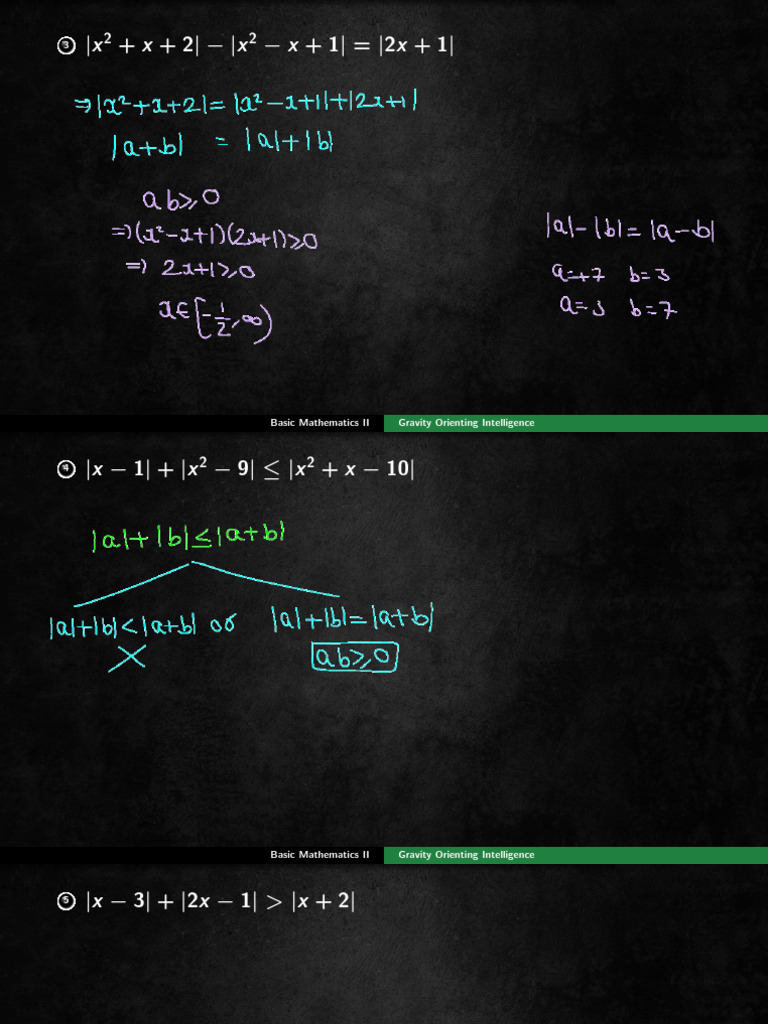 ③ |x² + x + 2| − |x² − x + 1| = |2x + 1|
⇒ |x²+x+2| = |x²−x+1|+|2x+1|
|a+b| = |a|+|b|
ab ≥ 0
⇒ (x²−x+1)(2x+1) ≥ 0
⇒ 2x+1 ≥ 0
x ∈ [−1/2, ∞)
|a|−|b| = |a−b|
a=+7 b=3
a=3 b=7
Basic Mathematics II Gravity Orienting Intelligence
④ |x − 1| + |x² − 9| ≤ |x² + x − 10|
|a|+|b| ≤ |a+b|
|a|+|b| < |a+b| or |a|+|b| = |a+b|
ab ≥ 0
Basic Mathematics II Gravity Orienting Intelligence
⑤ |x − 3| + |2x − 1| > |x + 2|